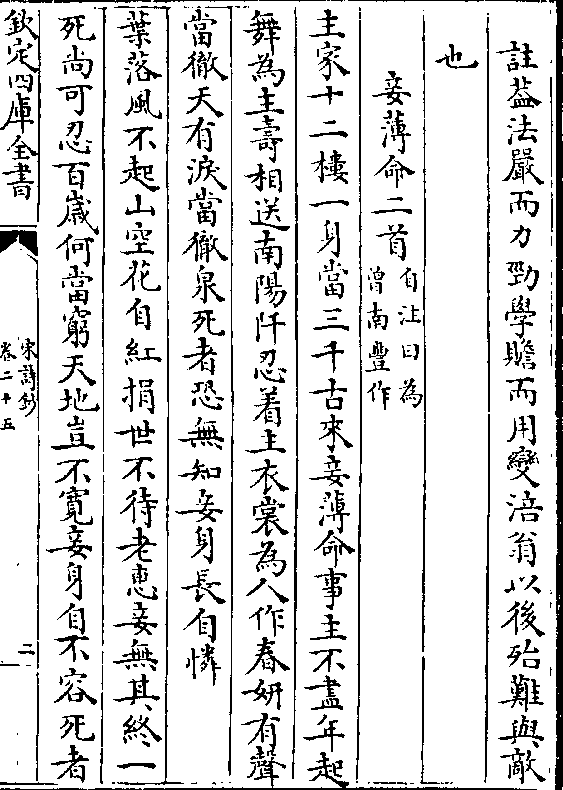 註葢法嚴而力勁學贍而用變涪翁以後殆難與敵
也
妾薄命二首自注曰為
曾南豐作
主家十二樓一身當三千古來妾薄命事主不盡年起
舞為主壽相送南陽阡忍着主衣裳為人作春妍有聲
當徹天有淚當徹泉死者恐無知妾身長自憐
葉落風不起山空花自紅捐世不待老恵妾無其終一
死尚可忍百歲何當窮天地豈不寛妾身自不容死者
欽定四庫全書
宋詩鈔
卷二十五
二